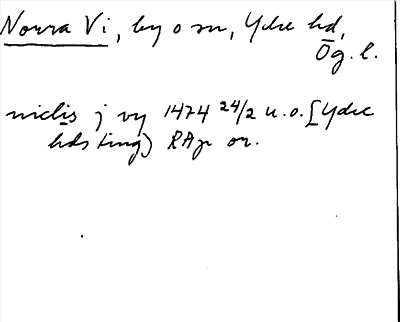 Norra Vi, by o sn, Ydre hd,
Ög. l.
niclis j vy 1474 24/2 u.o. [Ydre
hds ting] RAp or.